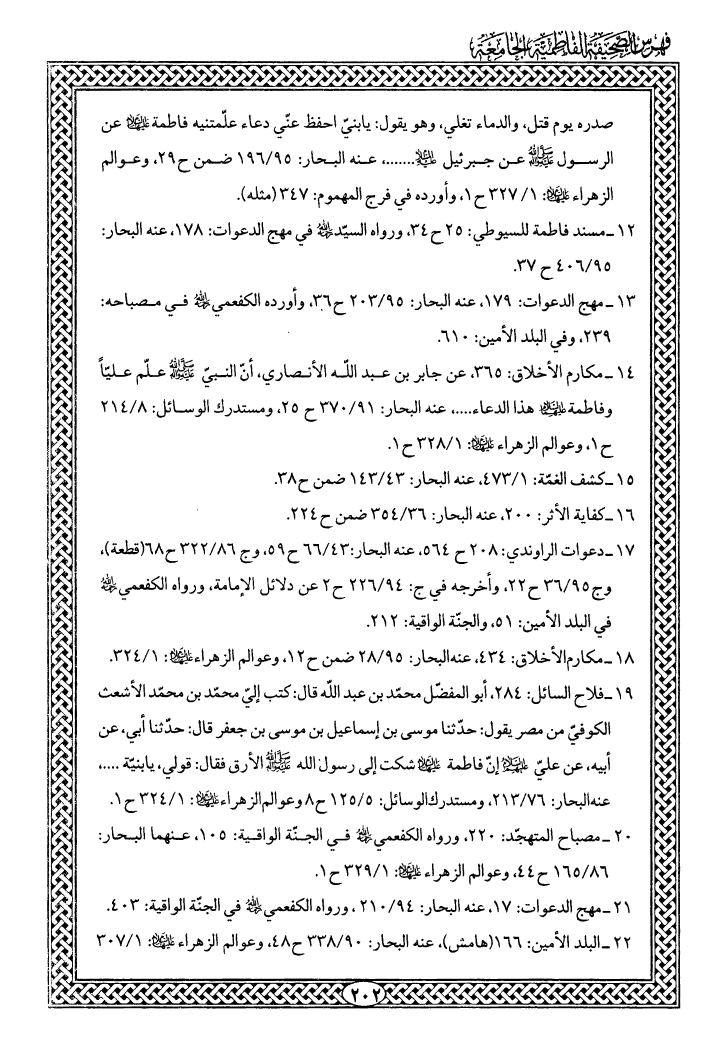 فهرس الصحيفة الفاطمية الجامعة
صدره يوم قتل، والدماء تغلي، وهو يقول: يابنيّ احفظ عنّي دعاء علّمتنيه فاطمة عليها السلام عن
الرسول ﷺ عن جبرئيل عليه السلام .......، عنه البحار: ١٩٦/٩٥ ضمن ح٢٩، وعوالم
الزهراء عليها السلام: ٣٢٧/١ ح١، وأورده في فرج المهموم: ٣٤٧ (مثله).
١٢ ـ مسند فاطمة للسيوطي: ٢٥ ح٣٤، ورواه السيّد رحمه الله في مهج الدعوات: ١٧٨، عنه البحار:
٤٠٦/٩٥ ح ٣٧.
١٣ ـ مهج الدعوات: ١٧٩، عنه البحار: ٢٠٣/٩٥ ح٣٦، وأورده الكفعمي رحمه الله في مصباحه:
٢٣٩، وفي البلد الأمين: ٦١٠.
١٤ ـ مكارم الأخلاق: ٣٦٥، عن جابر بن عبد اللّه الأنصاري، أنّ النبيّ ﷺ علّم عليّاً
وفاطمة عليهما السلام هذا الدعاء....، عنه البحار: ٣٧٠/٩١ ح ٢٥، ومستدرك الوسائل: ٢١٤/٨
ح١، وعوالم الزهراء عليها السلام: ٣٢٨/١ ح١.
١٥ ـ كشف الغمّة: ٤٧٣/١، عنه البحار: ١٤٣/٤٣ ضمن ح٣٨.
١٦ ـ كفاية الأثر: ٢٠٠، عنه البحار: ٣٥٤/٣٦ ضمن ح٢٢٤.
١٧ ـ دعوات الراوندي: ٢٠٨ ح ٥٦٤، عنه البحار: ٦٦/٤٣ ح٥٩، وج ٣٢٢/٨٦ ح٦٨(قطعة)،
وج٣٦/٩٥ ح٢٢، وأخرجه في ج: ٢٢٦/٩٤ ح٢ عن دلائل الإمامة، ورواه الكفعمي رحمه الله
في البلد الأمين: ٥١، والجنّة الواقية: ٢١٢.
١٨ ـ مكارم الأخلاق: ٤٣٤، عنه البحار: ٢٨/٩٥ ضمن ح١٢، وعوالم الزهراء عليها السلام: ٣٢٤/١.
١٩ ـ فلاح السائل: ٢٨٤، أبو المفضّل محمّد بن عبد اللّه قال: كتب إليّ محمّد بن محمّد الأشعث
الكوفيّ من مصر يقول: حدّثنا موسى بن إسماعيل بن موسى بن جعفر قال: حدّثنا أبي، عن
أبيه، عن عليّ عليه السلام إنّ فاطمة عليها السلام شكت إلى رسول الله ﷺ الأرق فقال: قولي، يابنيّة ....،
عنه البحار: ٢١٣/٧٦، ومستدرك الوسائل: ١٢٥/٥ ح٨ وعوالم الزهراء عليها السلام: ٣٢٤/١ ح١.
٢٠ ـ مصباح المتهجّد: ٢٢٠، ورواه الكفعمي رحمه الله في الجنّة الواقية: ١٠٥، عنهما البحار:
١٦٥/٨٦ ح٤٤، وعوالم الزهراء عليها السلام: ٣٢٩/١ ح١.
٢١ ـ مهج الدعوات: ١٧، عنه البحار: ٢١٠/٩٤ ، ورواه الكفعمي رحمه الله في الجنّة الواقية: ٤٠٣.
٢٢ ـ البلد الأمين: ١٦٦(هامش)، عنه البحار: ٣٣٨/٩٠ ح٤٨، وعوالم الزهراء عليها السلام: ٣٠٧/١
٢٠٢